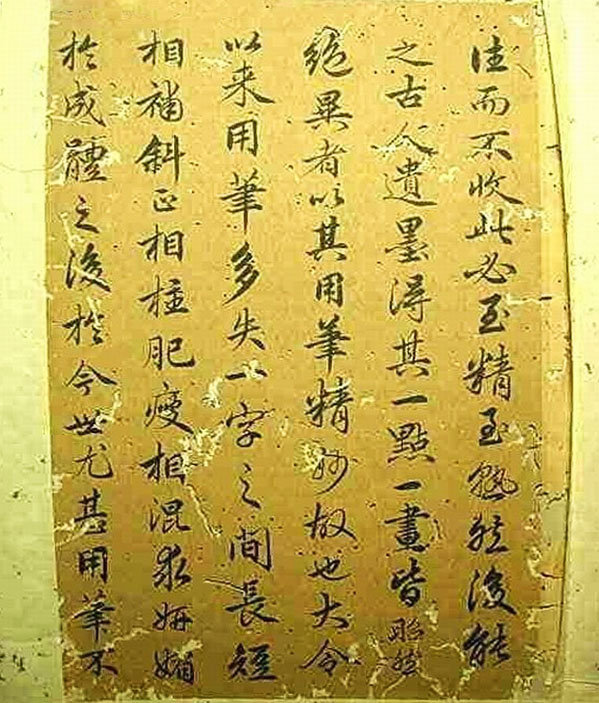 往而不收此必至精至熟然後能
之古人遺墨得其一點一畫皆昭然
絶異者以其用筆精妙故也大令
以来用筆多失一字之間長短
相補斜正相柱肥瘦相混求妍媚
於成體之後於今世尤甚用筆不